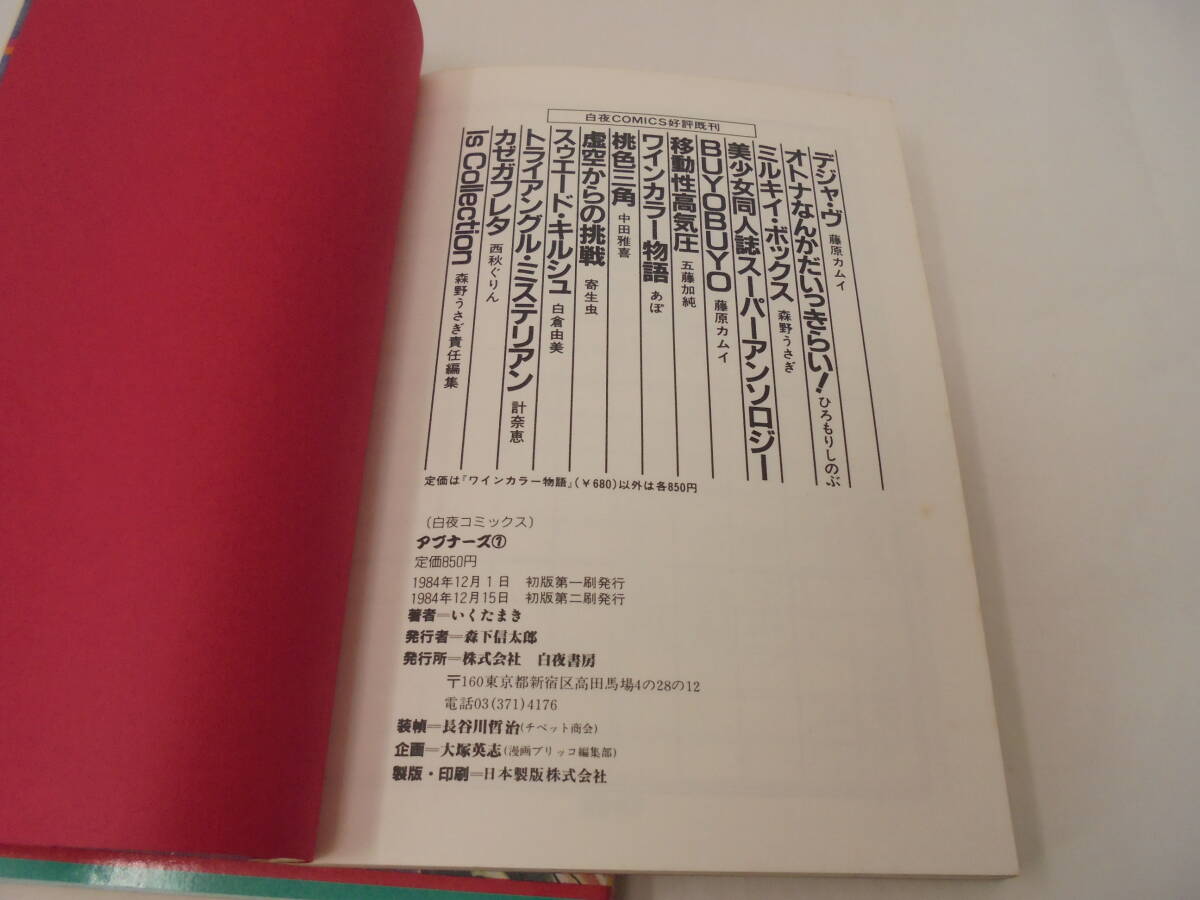 白夜COMICS好評既刊
デジャ・ヴ 藤原カムイ
オトナなんかだいっきらい! ひろもりしのぶ
ミルキィ・ボックス 森野うさぎ
美少女同人誌スーパーアンソロジー
BUYOBUYO 藤原カムイ
移動性高気圧 五藤加純
ワインカラー物語 あぽ
桃色三角 中田雅喜
虚空からの挑戦 寄生虫
スウェード・キルシュ 白倉由美
トライアングル・ミステリアン 計奈恵
カゼガフレタ 西秋ぐりん
Is Collection 森野うさぎ責任編集
定価は『ワインカラー物語』(¥680)以外は各850円
(白夜コミックス)
アブナーズ①
定価850円
1984年12月1日 初版第一刷発行
1984年12月15日 初版第二刷発行
著者=いくたまき
発行者=森下信太郎
発行所=株式会社 白夜書房
〒160東京都新宿区高田馬場4の28の12
電話03(371)4176
装幀=長谷川哲治(チベット商会)
企画=大塚英志(漫画ブリッコ編集部)
製版・印刷=日本製版株式会社